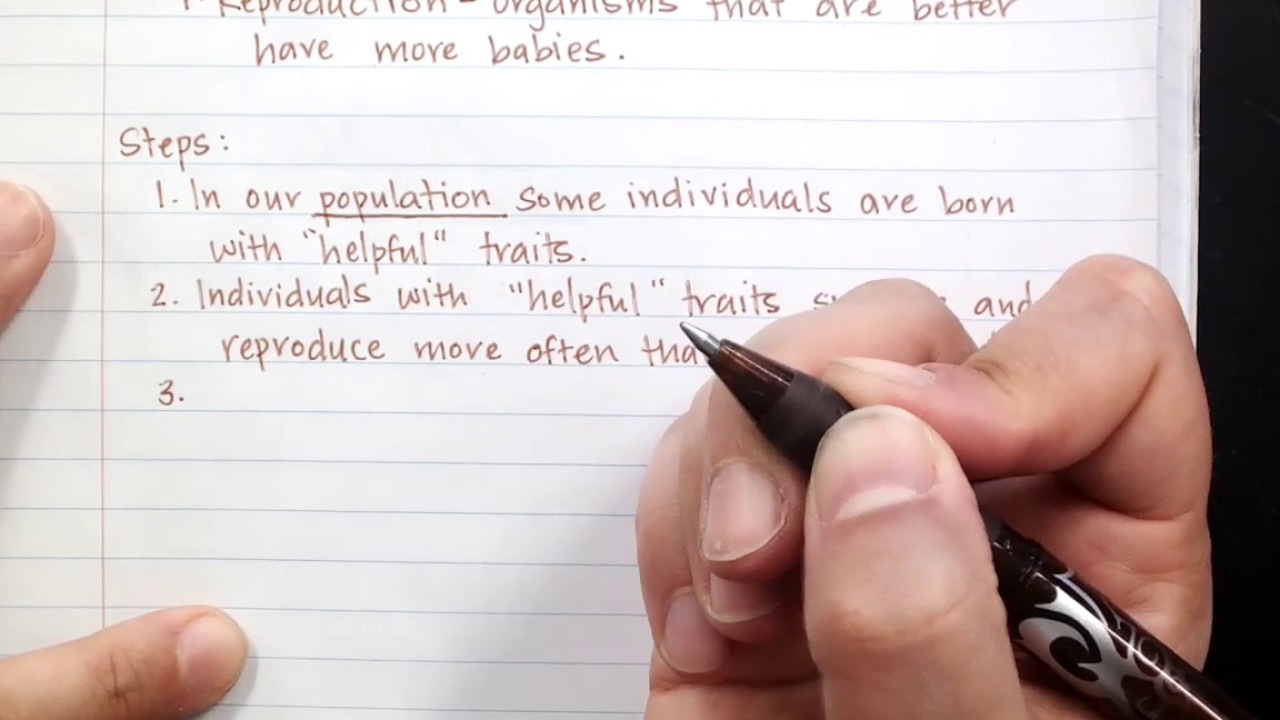 Reproduction - organisms that are better
have more babies.
Steps:
1. In our population some individuals are born
with "helpful" traits.
2. Individuals with "helpful" traits and
reproduce more often
3.